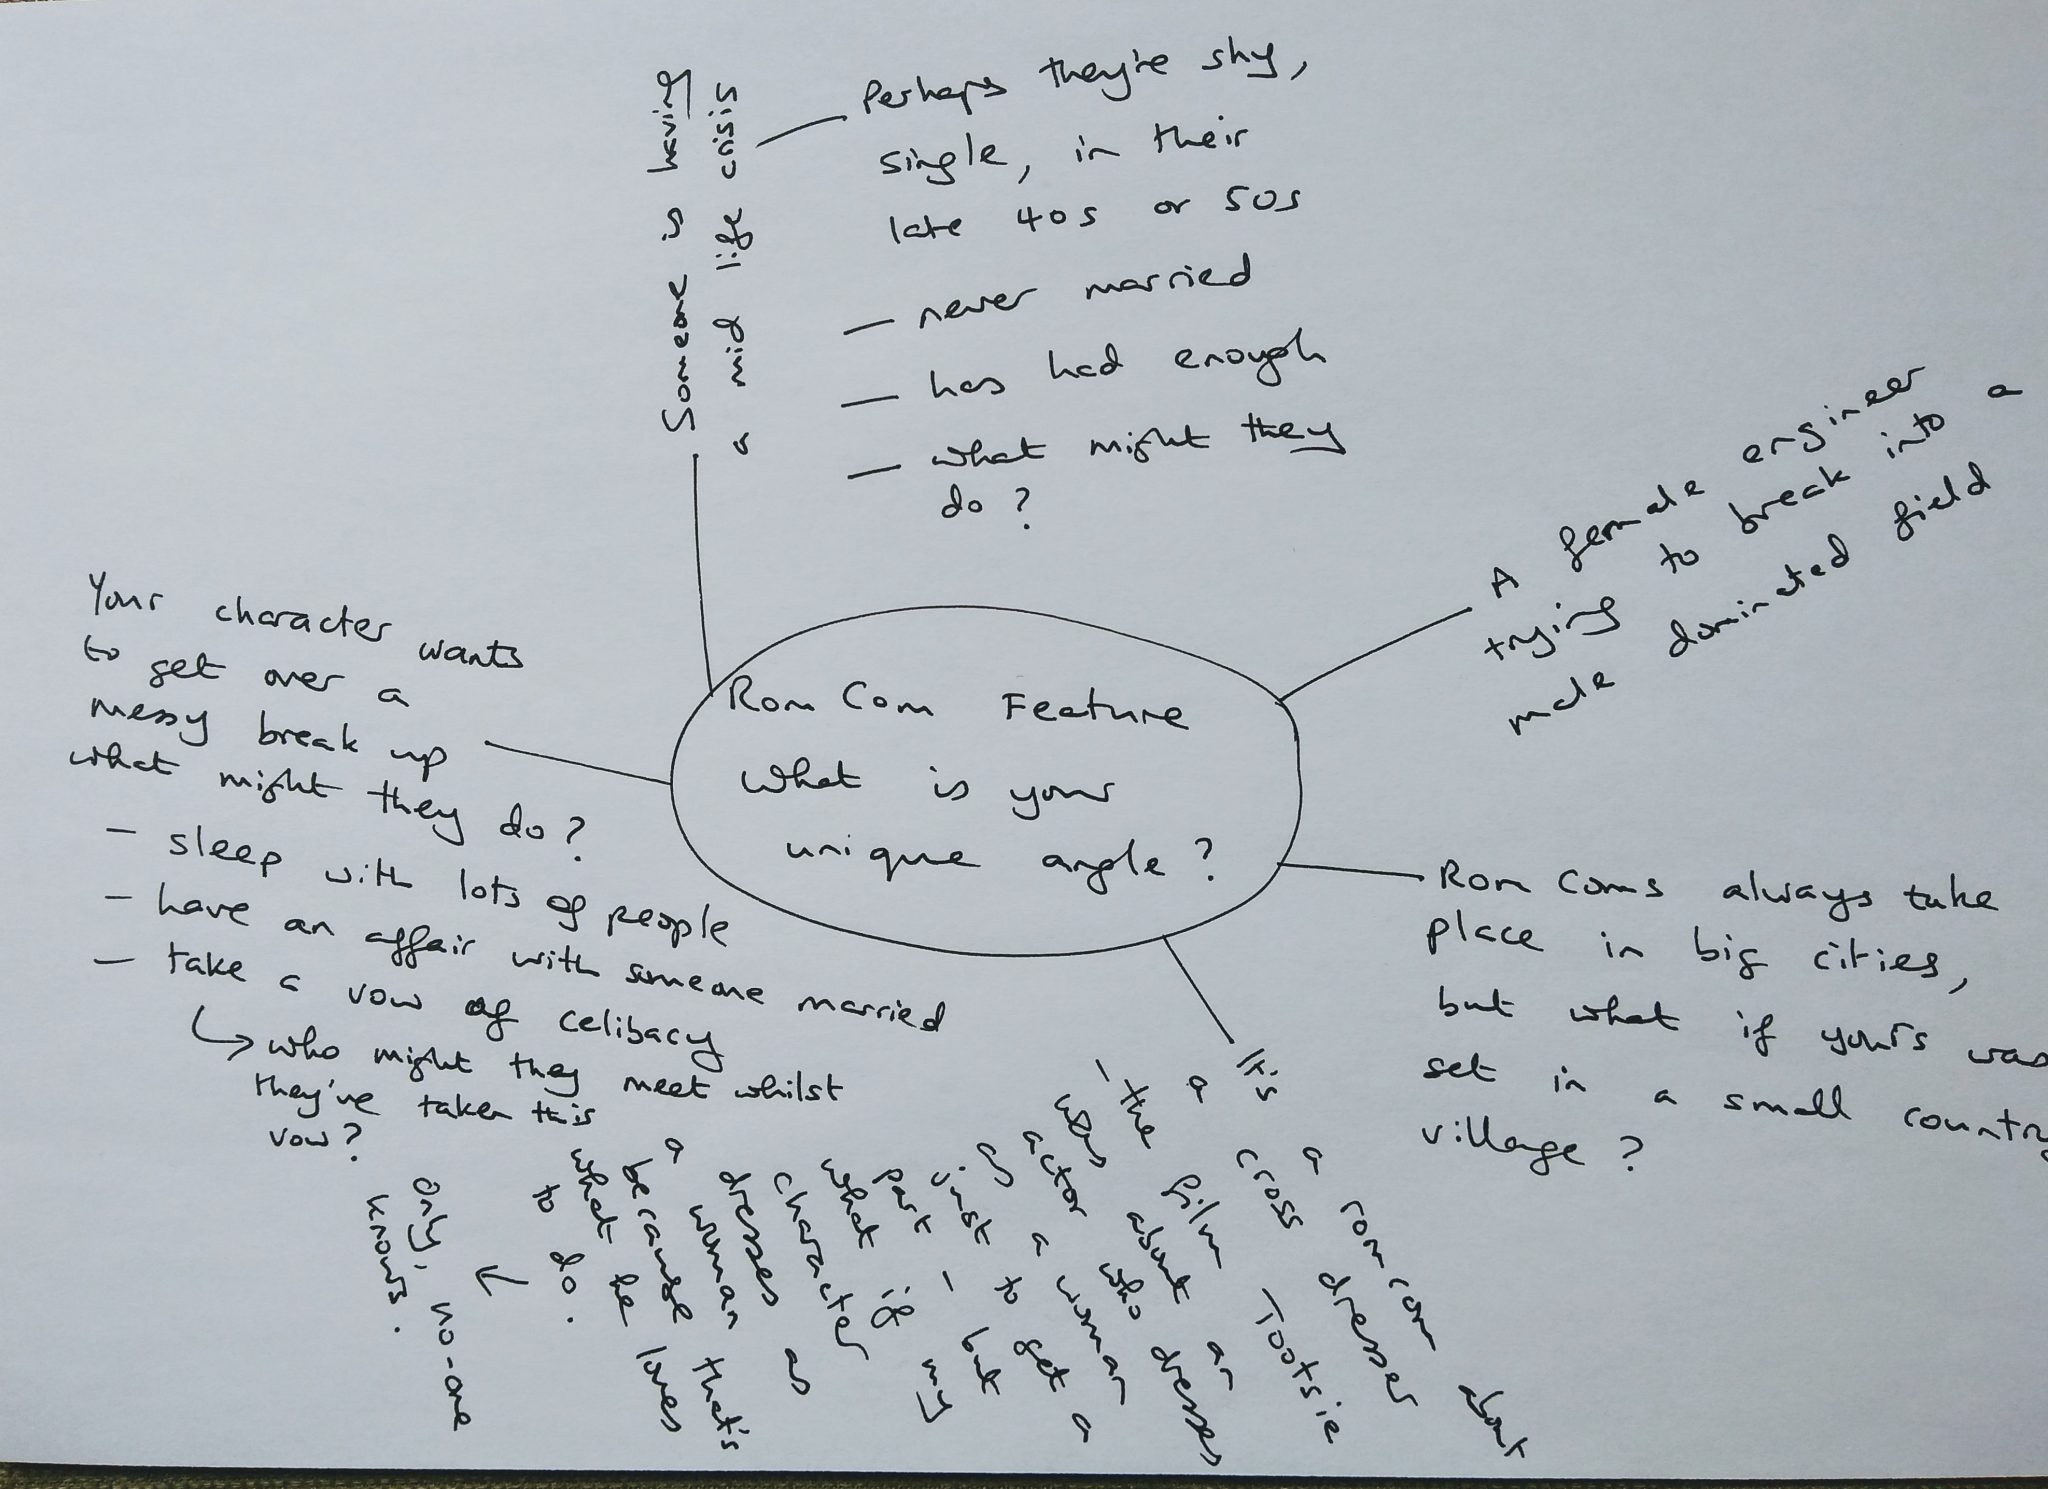 Rom Com Feature
What is your
unique angle?
Someone is having
a mid life crisis
Perhaps they're shy,
single, in their
late 40s or 50s
— never married
— has had enough
— what might they
do?
A female engineer
trying to break into a
male dominated field
Rom Coms always take
place in big cities,
but what if yours was
set in a small country
village?
It's a rom com about
a cross dresser
- the film Tootsie
was about an
actor who dresses
as a woman
just to get a
part - but
what if my
character
dresses as
a woman
because that's
what he loves
to do.
← Only, no-one
knows.
Your character wants
to get over a
messy break up
what might they do?
- sleep with lots of people
- have an affair with someone married
- take a vow of celibacy
↳ who might they meet whilst
they've taken this
vow?